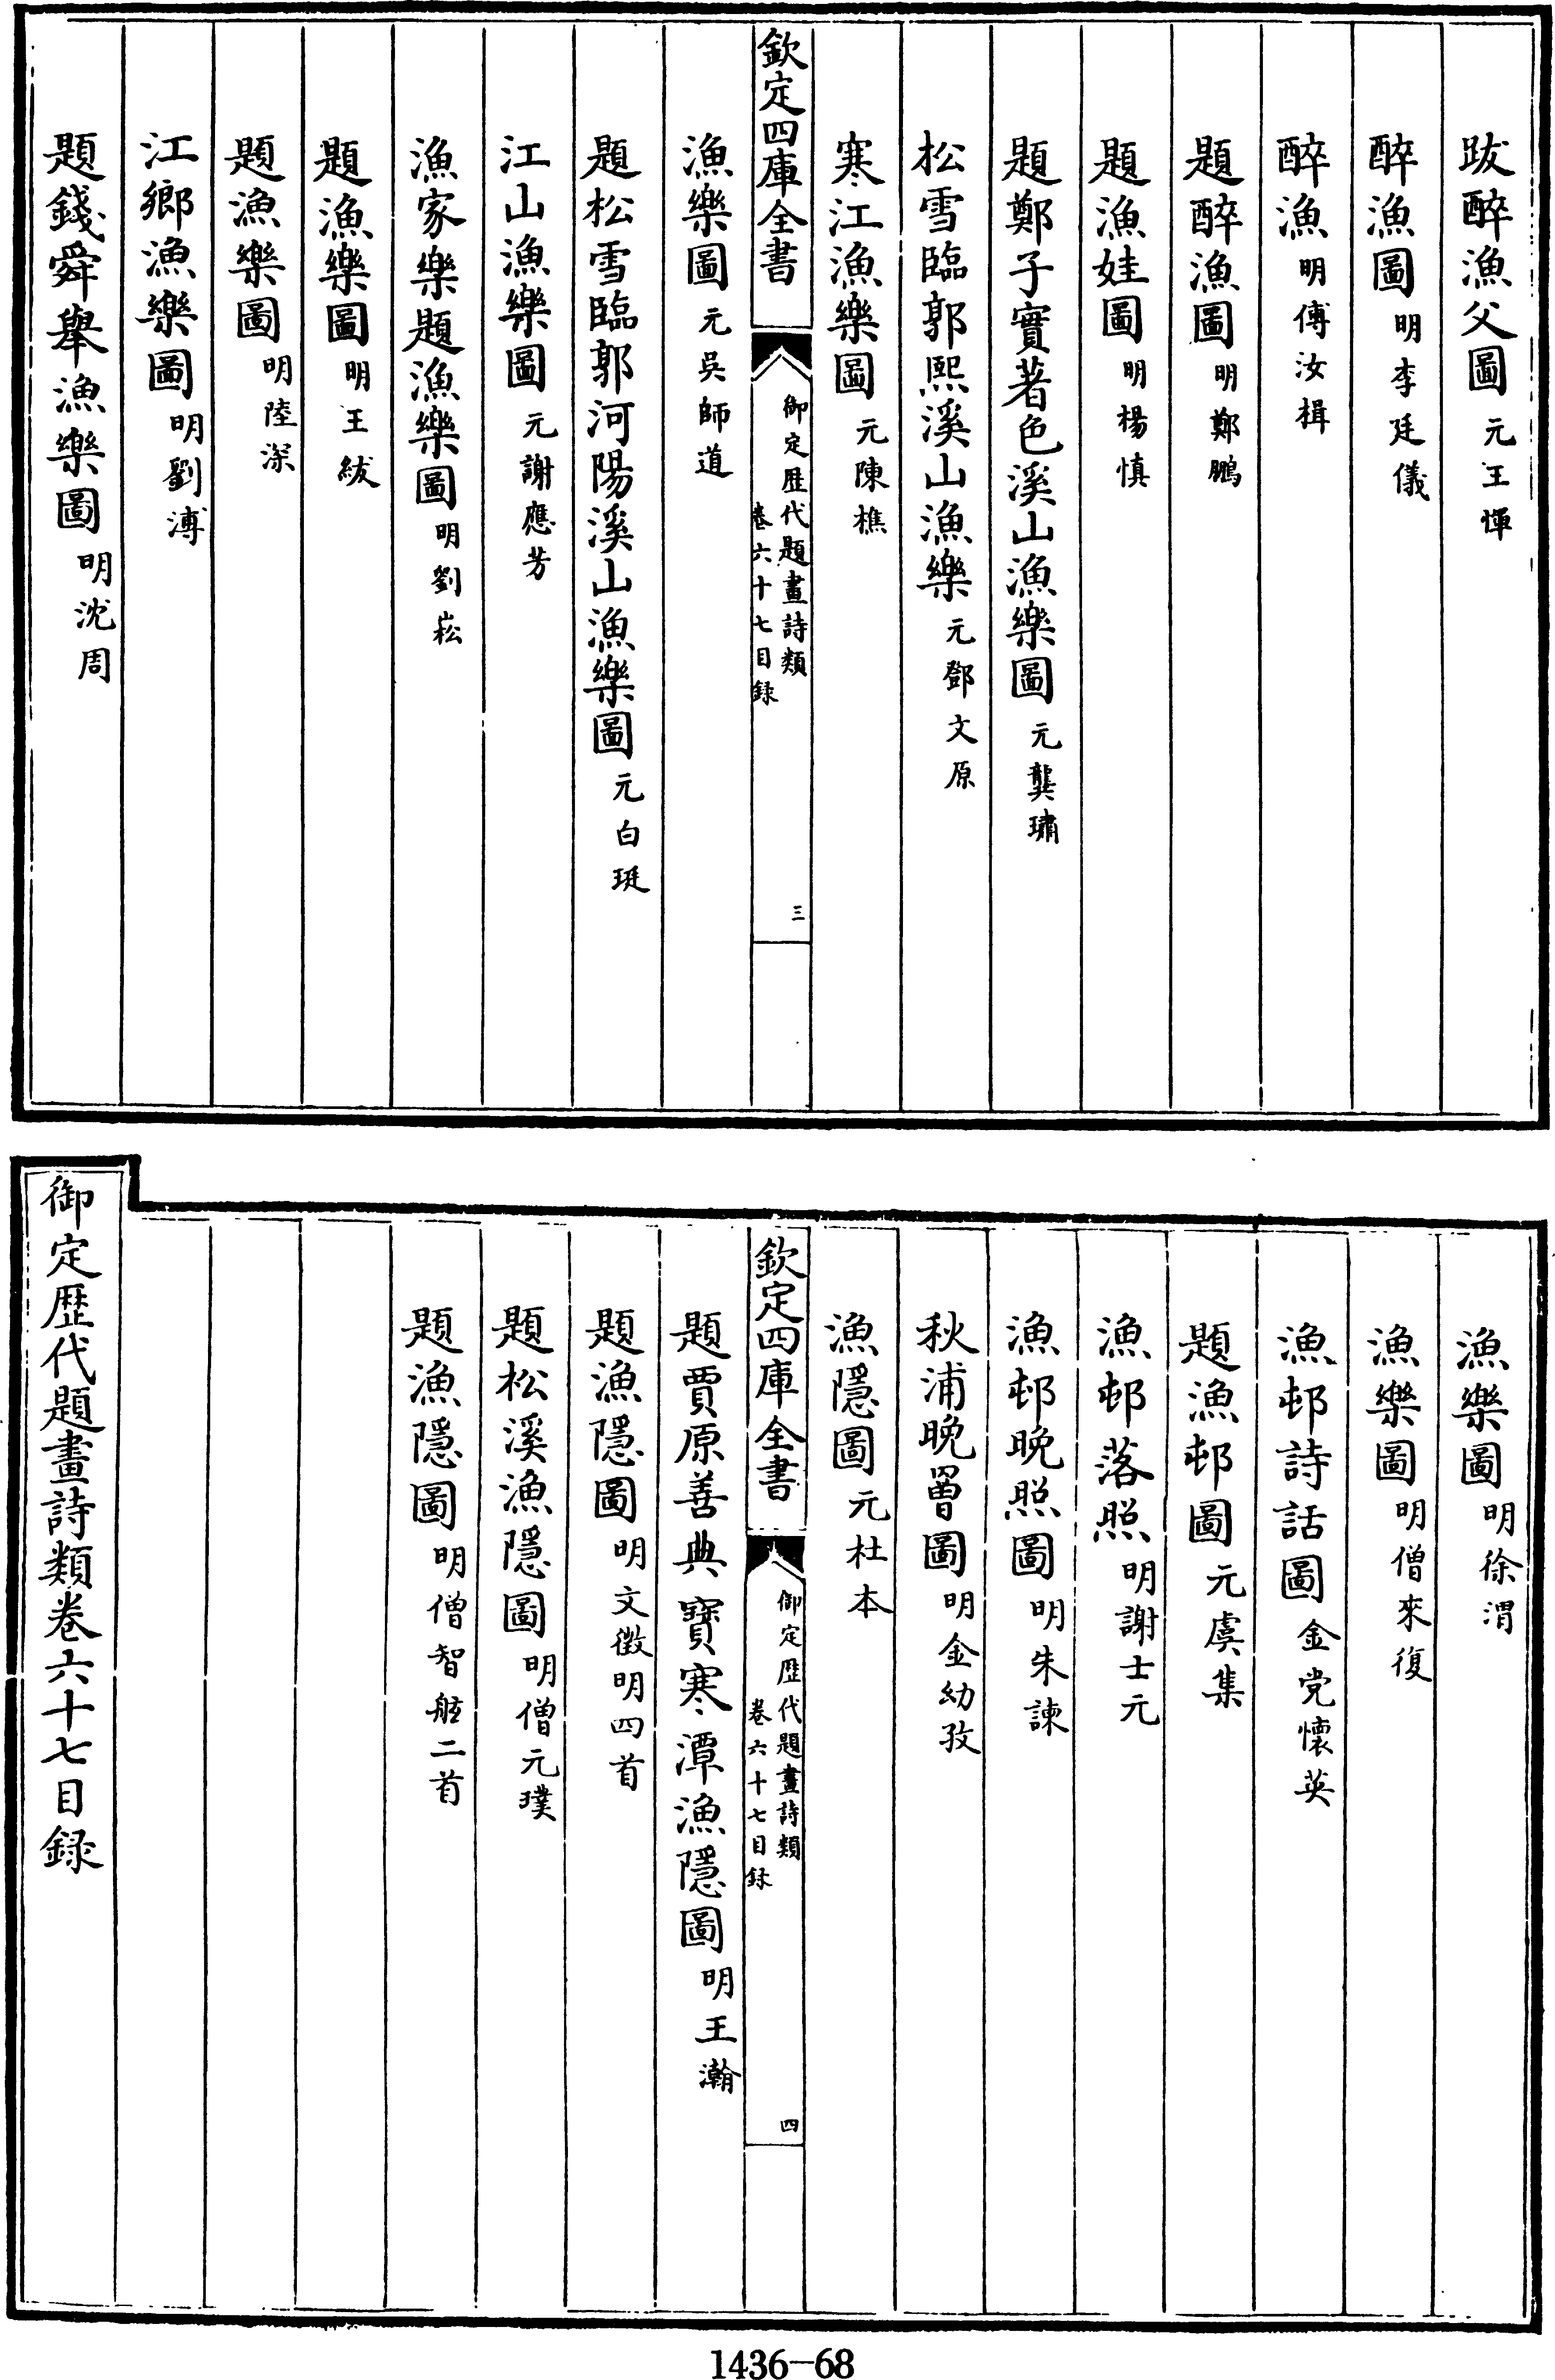 跋醉漁父圖 元王惲
醉漁圖 明李廷儀
醉漁 明傅汝楫
題醉漁圖 明鄭鵬
題漁娃圖 明楊慎
題鄭子實著色溪山漁樂圖 元龔璛
松雪臨郭熙溪山漁樂 元鄧文原
寒江漁樂圖 元陳樵
欽定四庫全書
御定歷代題畫詩類
卷六十七目録
三
漁樂圖 元吳師道
題松雪臨郭河陽溪山漁樂圖 元白珽
江山漁樂圖 元謝應芳
漁家樂題漁樂圖 明劉崧
題漁樂圖 明王紱
題漁樂圖 明陸深
江鄉漁樂圖 明劉溥
題錢舜舉漁樂圖 明沈周
漁樂圖 明徐渭
漁樂圖 明僧來復
漁邨詩話圖 金党懷英
題漁邨圖 元虞集
漁邨落照 明謝士元
漁邨晚照圖 明朱諫
秋浦晚罾圖 明金幼孜
漁隱圖 元杜本
欽定四庫全書
御定歷代題畫詩類
卷六十七目録
四
題賈原善典寶寒潭漁隱圖 明王瀚
題漁隱圖 明文徵明四首
題松溪漁隱圖 明僧元璞
題漁隱圖 明僧智舷二首
御定歷代題畫詩類卷六十七目録
1436—68